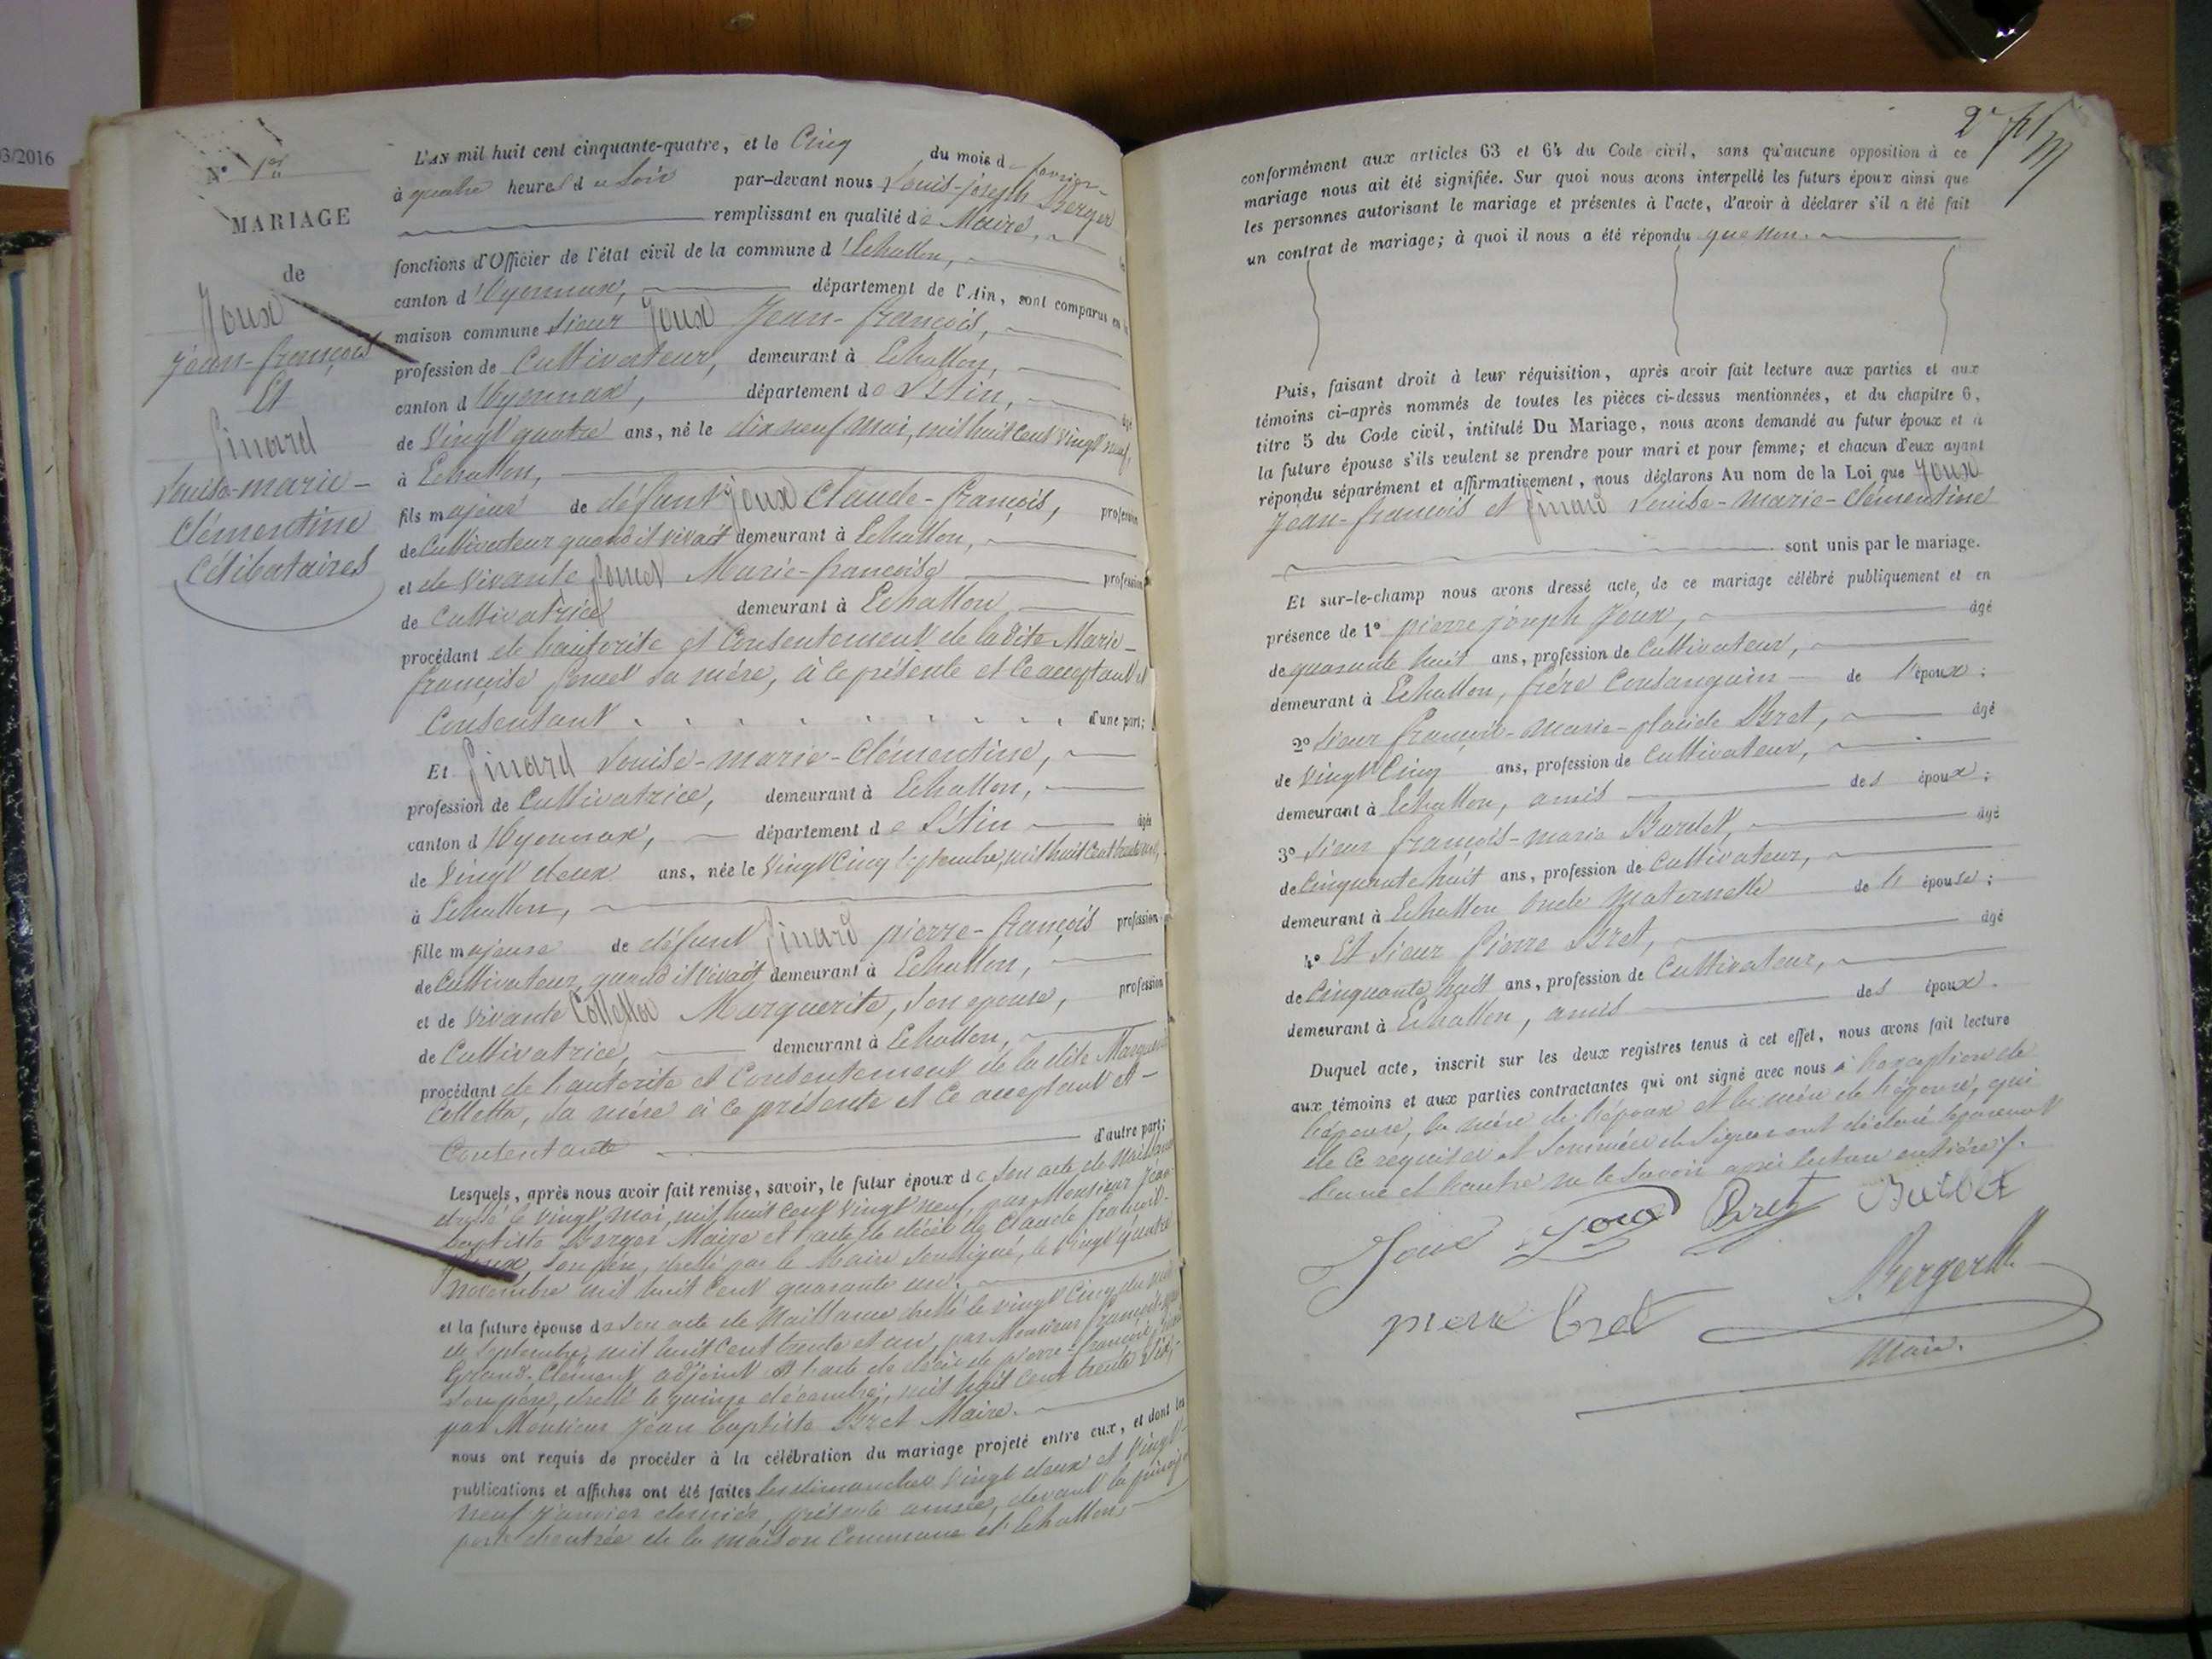 03/2016
N° 1er
MARIAGE
de
Joux
jean-françois
Et
Pinard
Louise-marie-
Clémentine
Célibataires
L'AN mil huit cent cinquante-quatre, et le Cinq du mois de février
à quatre heures du Soir par-devant nous Louis-joseph Berger
remplissant en qualité de Maire,
fonctions d'Officier de l'état civil de la commune d'Echallon,
canton d'Oyonnax, département de l'Ain, sont comparus en la
maison commune Sieur Joux Jean-françois,
profession de Cultivateur, demeurant à Echallon,
canton d'Oyonnax, département de L'Ain, âgé
de Vingt quatre ans, né le dix neuf mai, mil huit cent vingt neuf,
à Echallon,
fils majeur de défunt Joux Claude-françois, profession
de Cultivateur quand il vivait demeurant à Echallon,
et de vivante Marie-françoise profession
de Cultivatrice demeurant à Echallon,
procédant de l'autorité et Consentement de la dite Marie-
françoise sa mère, à ce présente et ce acceptant et
Consentant d'une part;
Et Pinard Louise-marie-Clémentine,
profession de Cultivatrice, demeurant à Echallon,
canton d'Oyonnax, département de L'Ain âgée
de Vingt deux ans, née le Vingt Cinq Septembre, mil huit cent trente un,
à Echallon,
fille majeure de défunt Pinard pierre-françois profession
de Cultivateur, quand il vivait demeurant à Echallon,
et de vivante Colletta Marguerite, son épouse, profession
de Cultivatrice, demeurant à Echallon,
procédant de l'autorité et Consentement de la dite Marguerite
Colletta, sa mère à ce présente et ce acceptant et
Consentante d'autre part;
Lesquels, après nous avoir fait remise, savoir, le futur époux de son acte de Naissance
dressé le vingt mai, mil huit cent vingt neuf, par Monsieur Jean-
baptiste Berger Maire et l'acte de décès de Claude françois-
Joux, son père, dressé par le Maire soussigné, le vingt quatre
Novembre mil huit cent quarante un.
et la future épouse de son acte de Naissance dressé le vingt Cinq du mois
de Septembre, mil huit cent trente et un, par Monsieur françois
Grand-Clément, adjoint et l'acte de décès de pierre-françois Pinard
son père, dressé le quinze décembre, mil huit cent trente
par Monsieur Jean baptiste Bret Maire.
nous ont requis de procéder à la célébration du mariage projeté entre eux, et dont les
publications et affiches ont été faites les dimanches vingt deux et vingt-
neuf janvier dernier, présente année, devant la principale
porte d'entrée de la maison Commune d'Echallon,
2
conformément aux articles 63 et 64 du Code civil, sans qu'aucune opposition à ce
mariage nous ait été signifiée. Sur quoi nous avons interpellé les futurs époux ainsi que
les personnes autorisant le mariage et présentes à l'acte, d'avoir à déclarer s'il a été fait
un contrat de mariage; à quoi il nous a été répondu que non.
Puis, faisant droit à leur réquisition, après avoir fait lecture aux parties et aux
témoins ci-après nommés de toutes les pièces ci-dessus mentionnées, et du chapitre 6,
titre 5 du Code civil, intitulé Du Mariage, nous avons demandé au futur époux et à
la future épouse s'ils veulent se prendre pour mari et pour femme; et chacun d'eux ayant
répondu séparément et affirmativement, nous déclarons Au nom de la Loi que Joux
Jean-françois et Pinard Louise-marie-Clémentine
sont unis par le mariage.
Et sur-le-champ nous avons dressé acte de ce mariage célébré publiquement et en
présence de 1° pierre joseph Joux, âgé
de quarante huit ans, profession de Cultivateur,
demeurant à Echallon, frère Consanguin de l'époux;
2° Sieur françois-marie-placide Bret, âgé
de Vingt Cinq ans, profession de Cultivateur,
demeurant à Echallon, amis des époux;
3° Sieur françois-marie Burdet, âgé
de Cinquante huit ans, profession de Cultivateur,
demeurant à Echallon oncle maternelle de l'épouse;
4° Et Sieur Pierre Bret, âgé
de Cinquante huit ans, profession de Cultivateur,
demeurant à Echallon, amis des époux.
Duquel acte, inscrit sur les deux registres tenus à cet effet, nous avons fait lecture
aux témoins et aux parties contractantes qui ont signé avec nous à l'exception de
l'épouse, la mère de l'époux et la mère de l'épouse, qui
de ce requises et sommées de signer ont déclaré séparément
l'une et l'autre ne le savoir après lecture entière
Joux Joux Bret
Berger
pierre bret
Maire.